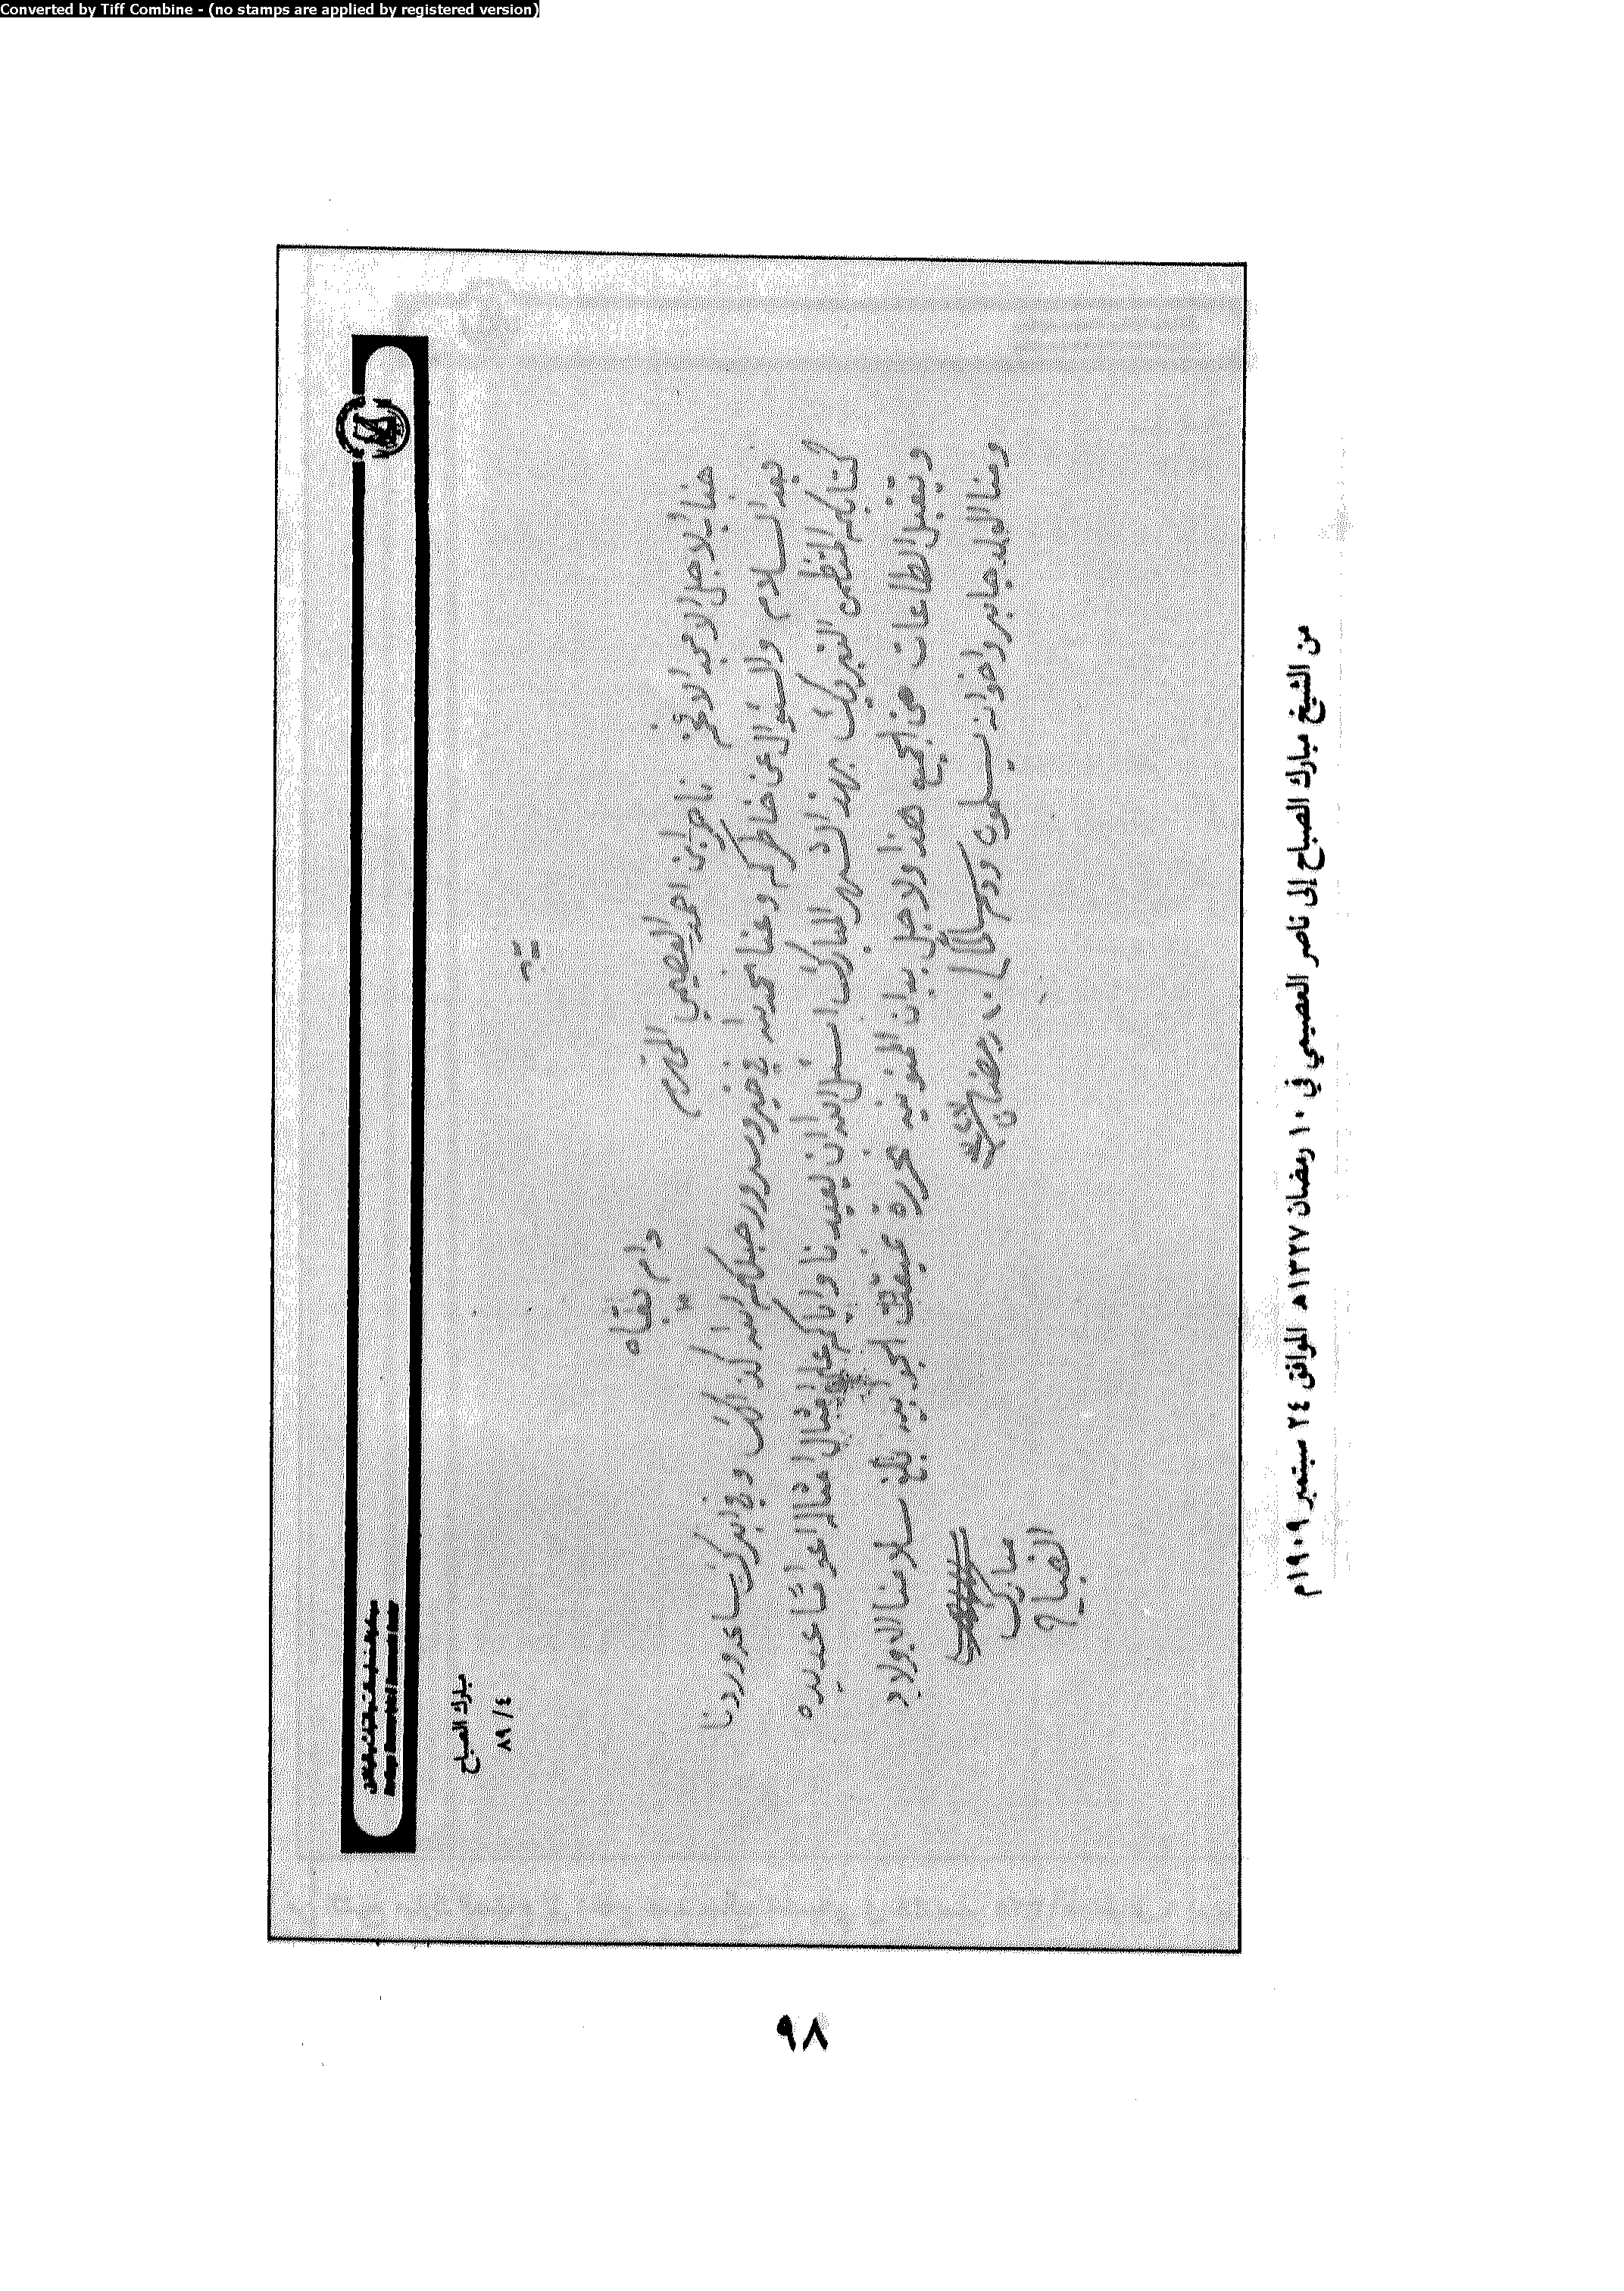 Converted by Tiff Combine - (no stamps are applied by registered version)
مبارك الصباح
٨٩/٤
جناب الاجل الامجد الافخم ناصر ابن احمد العصيمي المحترم دام بقاه
بعد السلام والسؤال عن خاطركم وعنا نحمد الله في خير وسرور جعلكم الله كذالك وفي ابرك ساعه وردنا
كتابكم المتظمن التبريك بهذا الشهر المبارك اسئل الله ان يعيدنا واياكم على امثال امثاله اعواما عديده
ويتقبل الطاعات من الجميع هذا ولاجل بيان الممنونيه تحررة بلغ سلامنا الاولاد
ومنا الولد جابر واخوانه يسلمون ودمتم سالمين ١٠ رمضان ١٣٢٧
مبارك
الصباح
من الشيخ مبارك الصباح إلى ناصر العصيمي في ١٠ رمضان ١٣٢٧هـ الموافق ٢٤ سبتمبر ١٩٠٩م
٩٨